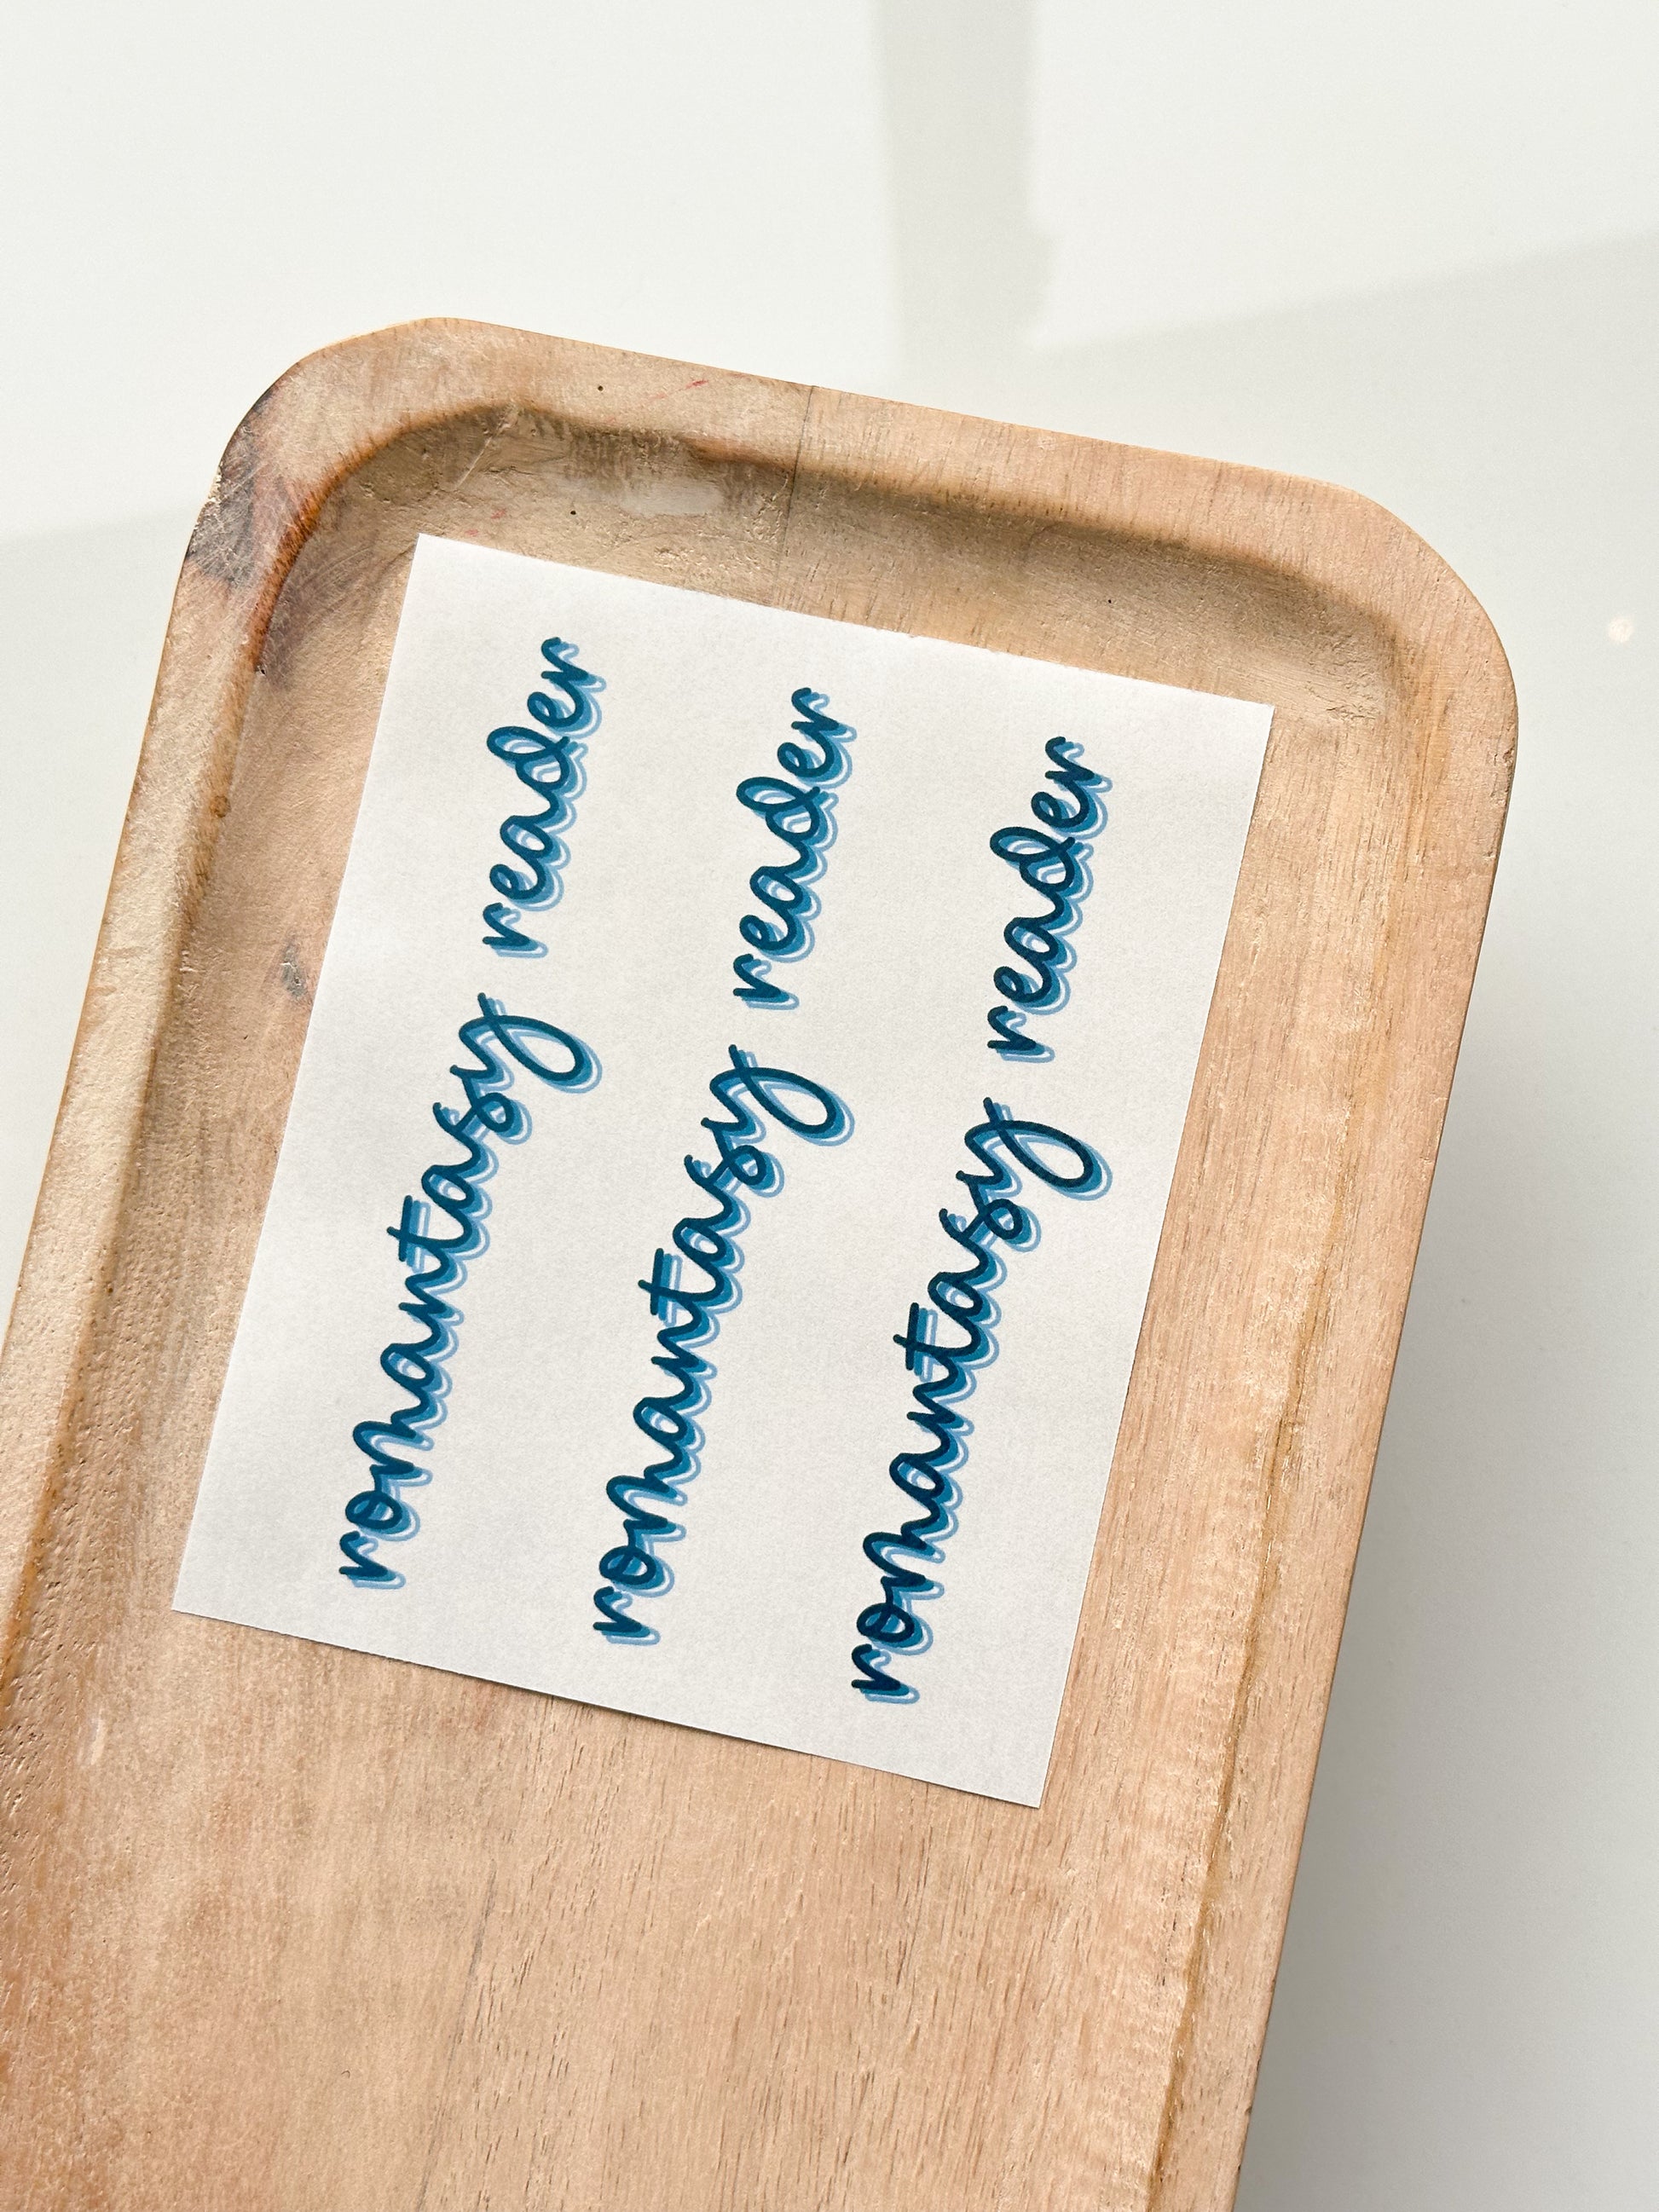 romantasy reader
romantasy reader
romantasy reader